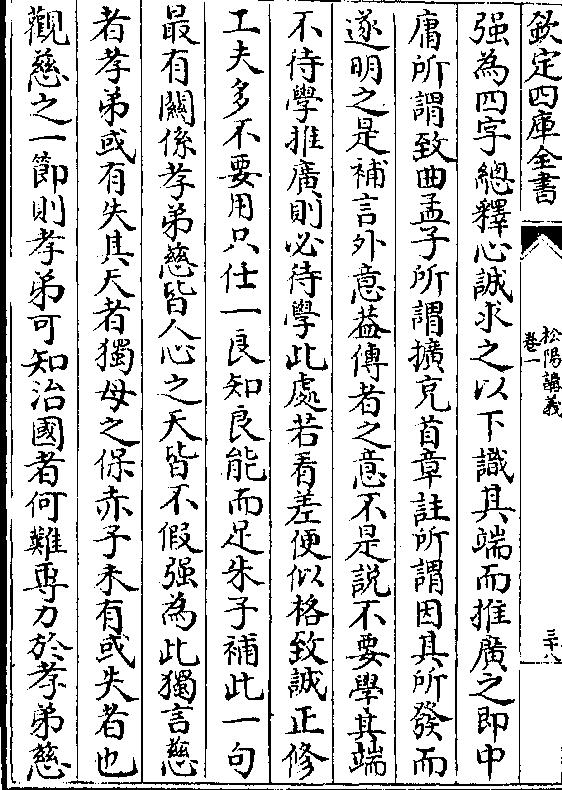 欽定四庫全書
松陽講義
卷二
三十八
强為四字總釋心誠求之以下識其端而推廣之即中
庸所謂致曲孟子所謂擴充首章註所謂因其所發而
遂明之是補言外意葢傳者之意不是說不要學其端
不待學推廣則必待學此處若看差便似格致誠正修
工夫多不要用只仕一良知良能而足朱子補此一句
最有關係孝弟慈皆人心之天皆不假强為此獨言慈
者孝弟或有失其天者獨母之保赤子未有或失者也
觀慈之一節則孝弟可知治國者何難專力於孝弟慈